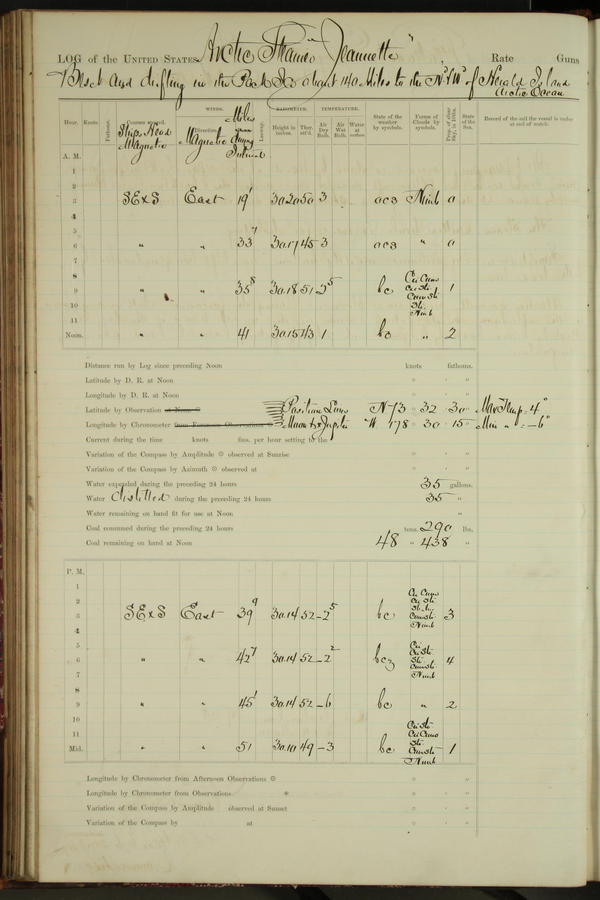 LOG of the UNITED STATES Arctic Steamer "Jeannette", Rate Guns
Beset and drifting in the Pack Ice about 140 Miles to the Nd & Wd of Herald Island
Arctic Ocean
Hour. Knots Fathoms. Courses steered. Ships Head Magnetic WINDS. Direction Magnetic Miles during Interval Leeway. BAROMETER. Height in inches. Ther. att'd. TEMPERATURE. Air Dry Bulb. Air Wet Bulb. Water at surface. State of the weather by symbols. Forms of Clouds by symbols. Prop. of clear Sky, in 10ths. State of the Sea. Record of the sail the vessel is under at end of watch.
A. M.
1
2
3 SExS East 19¹ 30.20 50 3 Nimb 0
4
5
6 " " 33⁷ 30.17 45 3 " 0
7
8
9 " " 35⁸ 30.18 51 -2⁵ bc Cir Cum Cir St. Cum St. St. Nimb 1
10
11
Noon. " " 41 30.15 43 1 bc " 2
Distance run by Log since preceding Noon knots fathoms.
Latitude by D. R. at Noon ° ' "
Longitude by D. R. at Noon ° ' "
Latitude by Observation at Noon ⊙ Position Lines N 73 ° 32 ' 30 " Max Temp. = 4°
Longitude by Chronometer from Forenoon Observations ⊙ Moon & Jupiter W 178 ° 30 ' 15 " Min " = -6°
Current during the time knots fms. per hour setting to the
Variation of the Compass by Amplitude ⊙ observed at Sunrise ° ' "
Variation of the Compass by Azimuth ⊙ observed at ° ' "
Water expended during the preceding 24 hours 35 gallons.
Water distilled during the preceding 24 hours 35 "
Water remaining on hand fit for use at Noon "
Coal consumed during the preceding 24 hours tons. 290 lbs.
Coal remaining on hand at Noon 48 " 438 "
P. M.
1
2
3 SExS East 39⁹ 30.14 52 -2⁵ bc Cir Cum Cir St. St. Cum St. Nimb 3
4
5
6 " " 42⁷ 30.14 52 -2² bcz Cir Cir St. St. Cum St. Nimb 4
7
8
9 " " 45¹ 30.14 52 -6 bc " 2
10
11
Mid. " " 51 30.10 49 -3 bc Cir St. Cir Cum St. Cum St. Nimb 1
Longitude by Chronometer from Afternoon Observations ⊙ ° ' "
Longitude by Chronometer from Observations * ° ' "
Variation of the Compass by Amplitude observed at Sunset ° ' "
Variation of the Compass by at ° ' "